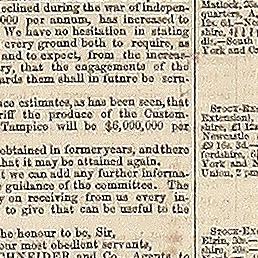 eclined during the war of Indepen-
000 per annum, has increased to
We have no hesitation in stating
every ground both to require, as
and to expect, from the increas-
ry, that the engagements of the
ards them shall in future be scru-
ce estimates, as has been seen, that
riff the produce of the Custom-
Tampico will be $6,000,000 per
obtained in former years, and there
hat it may be attained again.
t we can add any further informa-
e guidance of the committee. The
y on receiving from us every in-
to give that can be useful to the
he honour to be, Sir,
our most obedient servants,
CHNEIDER and Co., Agents to
Matlock, 
quarters, A
12s. 6d.—No
shire, 
South
York and C
STOCK-EX
Extension),
shire, £1 12
Newcastle
£9 16s. 3d.—
fordshire, 6
York and N
Union, 2 p
STOCK-EX
Elgin, 30s.—
shire, 20s.—